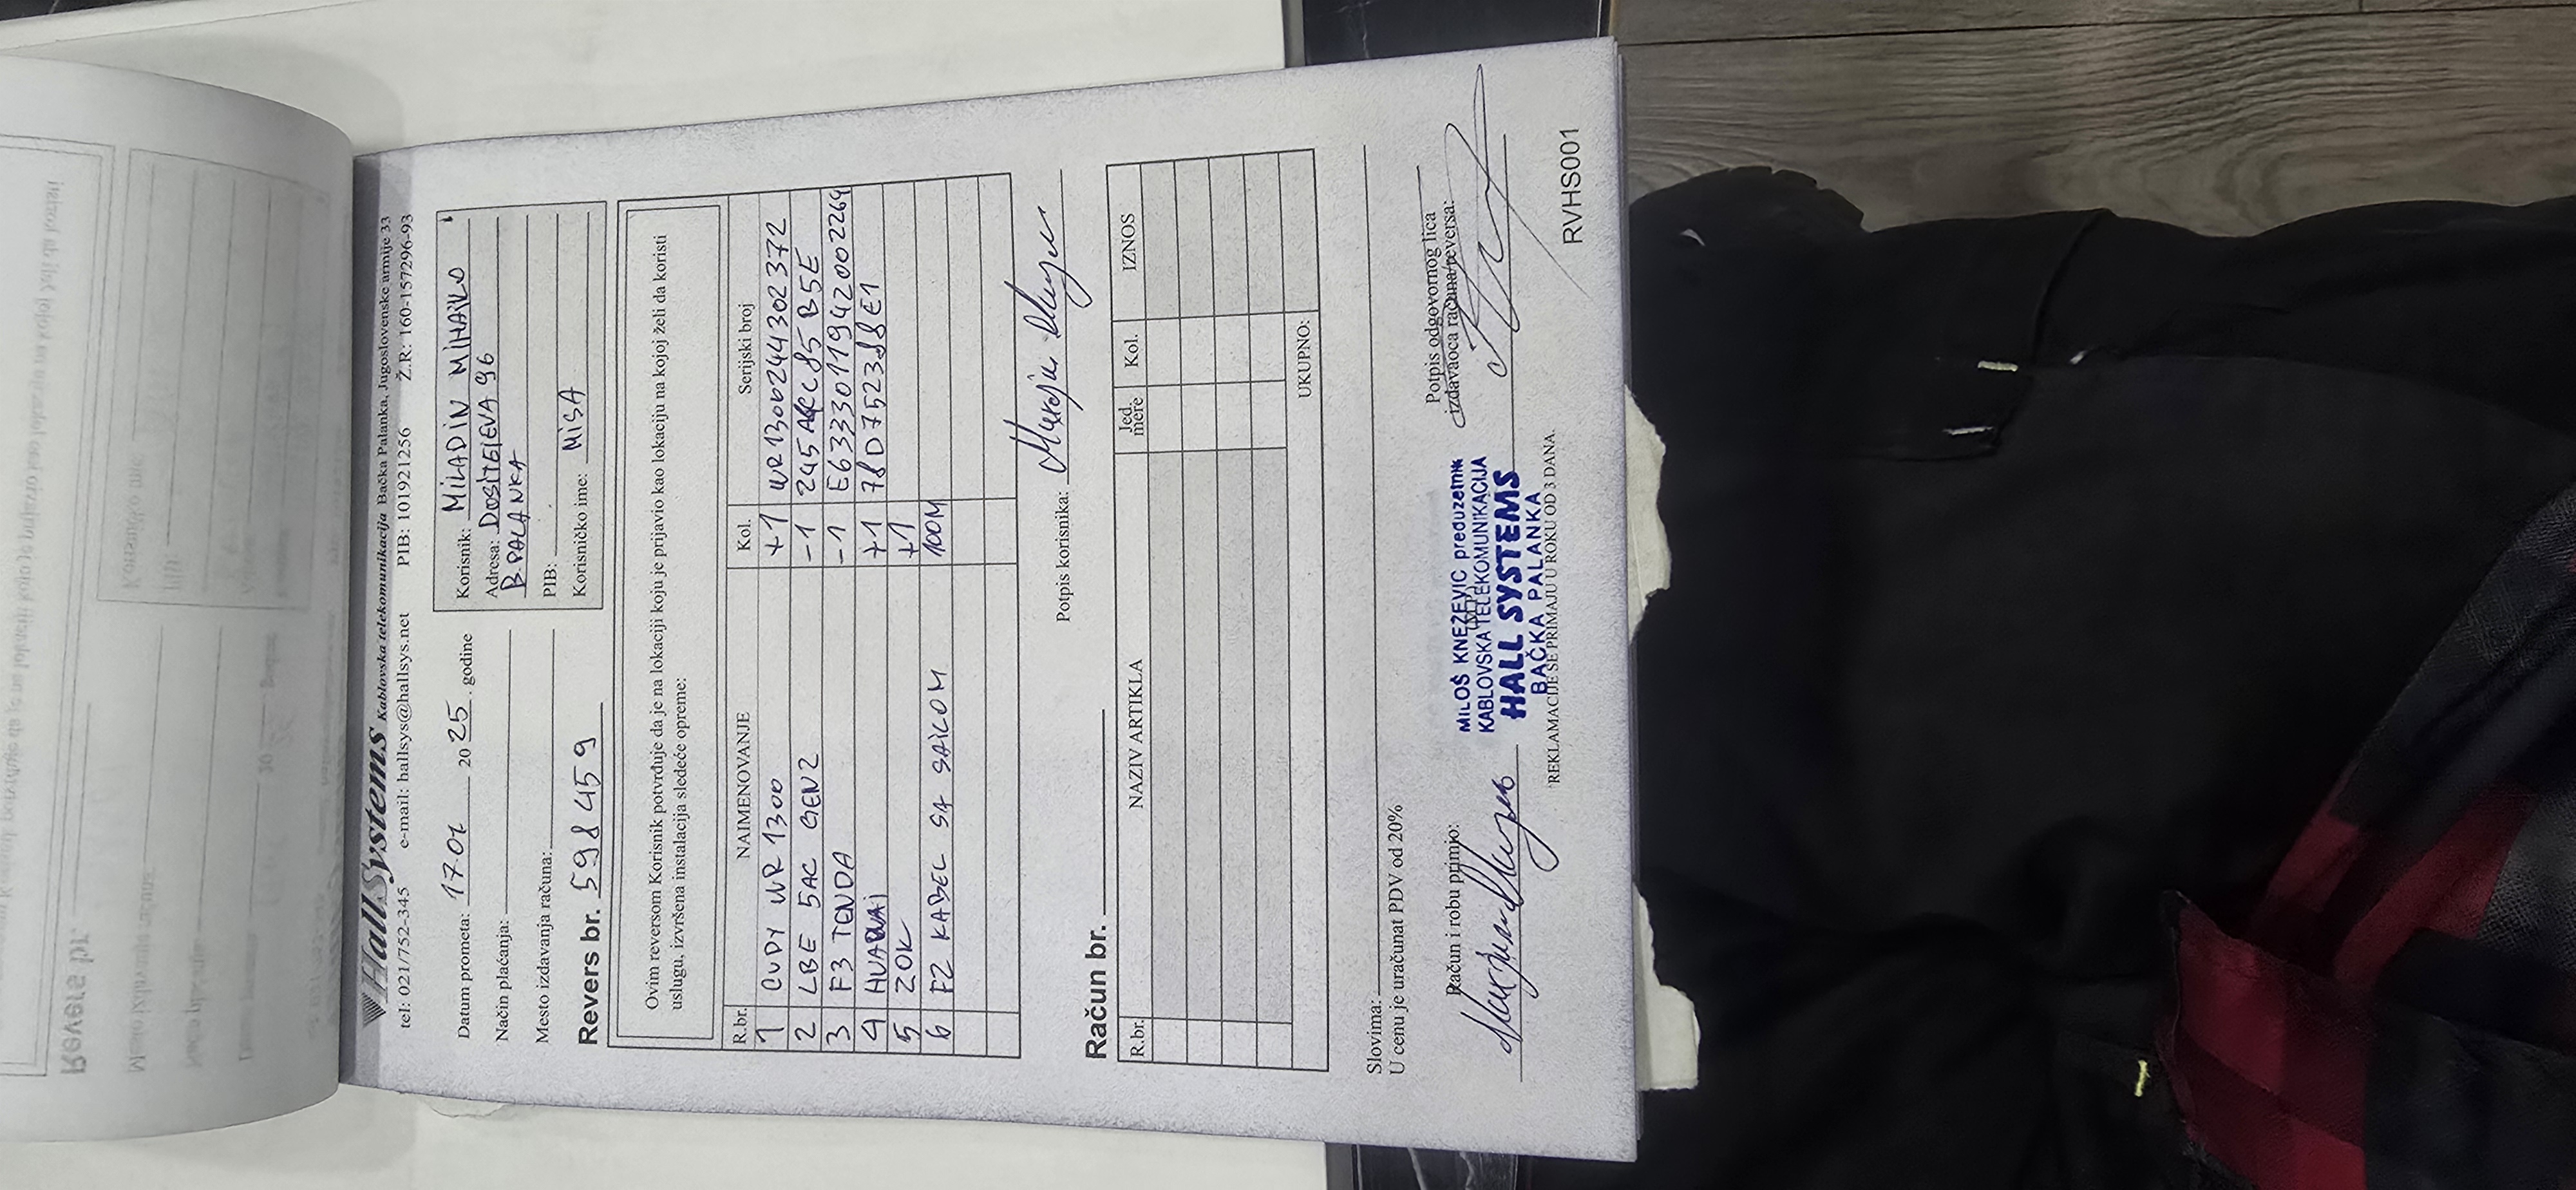 HallSystems Kablovska telekomunikacija Bačka Palanka, Jugoslovenske armije 33
tel: 021/752-345 e-mail: hallsys@hallsys.net PIB: 101921256 Ž.R: 160-157296-93
Datum prometa: 17.01 2025. godine
Način plaćanja:
Mesto izdavanja računa:
Revers br. 598459
Korisnik: MILADIN MIHAJLO
Adresa: DOSITEJEVA 96
B.PALANKA
PIB:
Korisničko ime: MISA
Ovim reversom Korisnik potvrđuje da je na lokaciji koju je prijavio kao lokaciju na kojoj želi da koristi
uslugu, izvršena instalacija sledeće opreme:
R.br. NAIMENOVANJE Kol. Serijski broj
1 CUDY WR 1300 +1 WR1300244302372
2 LBE 5AC GEN2 -1
3 F3 TENDA -1 E6333011942002264
4 HUAWAI +1 78D752388E1
5 ZOK +1
6 FZ KABEL SA SAJLOM 100M
Potpis korisnika:
Račun br.
R.br. NAZIV ARTIKLA Jed. mere Kol. IZNOS
UKUPNO:
Slovima:
U cenu je uračunat PDV od 20%
Račun i robu primio:
Potpis odgovornog lica
izdavaoca računa/reversa:
MILOŠ KNEŽEVIĆ preduzetnik
KABLOVSKA TELEKOMUNIKACIJA
HALL SYSTEMS
BAČKA PALANKA
REKLAMACIJE SE PRIMAJU U ROKU OD 3 DANA.
RVHS001